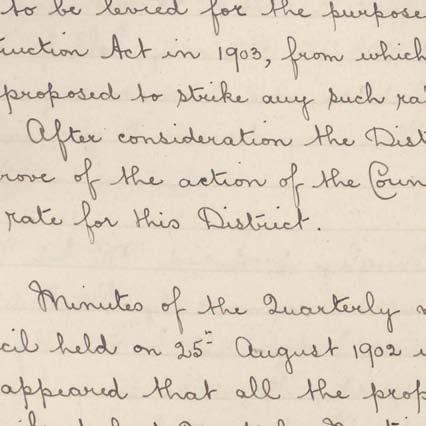 to be levied for the purpose
ruction Act in 1903, from which
proposed to strike any such ra
After consideration the Dist
rove of the action of the Coun
rate for this District.
Minutes of the Quarterly
cil held on 25th August 1902
appeared that all the prop